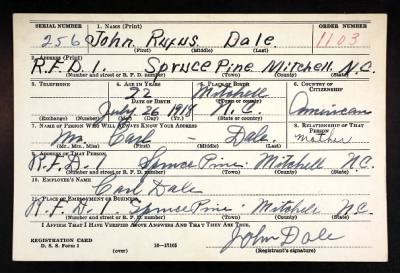 SERIAL NUMBER 1. NAME (Print) ORDER NUMBER
256 John Rufus Dale 1103
(First) (Middle) (Last)
2. ADDRESS (Print)
R.F.D. 1. Spruce Pine Mitchell N.C.
(Number and street or R. F. D. number) (Town) (County) (State)
3. TELEPHONE 4. AGE IN YEARS 5. PLACE OF BIRTH 6. COUNTRY OF CITIZENSHIP
22 Mitchell
DATE OF BIRTH (Town or county)
July 26 1918 N.C. American
(Exchange) (Number) (Mo.) (Day) (Yr.) (State or country)
7. NAME OF PERSON WHO WILL ALWAYS KNOW YOUR ADDRESS 8. RELATIONSHIP OF THAT PERSON
Mrs. Carl - Dale. Mother
(Mr., Mrs., Miss) (First) (Middle) (Last)
9. ADDRESS OF THAT PERSON
R.F.D. 1. Spruce Pine. Mitchell N.C.
(Number and street or R. F. D. number) (Town) (County) (State)
10. EMPLOYER'S NAME
Carl Dale
11. PLACE OF EMPLOYMENT OR BUSINESS
R.F.D. 1. Spruce Pine. Mitchell N.C.
(Number and street or R. F. D. number) (Town) (County) (State)
I AFFIRM THAT I HAVE VERIFIED ABOVE ANSWERS AND THAT THEY ARE TRUE.
John Dale
REGISTRATION CARD
D. S. S. Form 1 16-17105 (Registrant's signature)
(over)